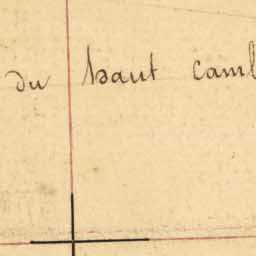 du haut camb